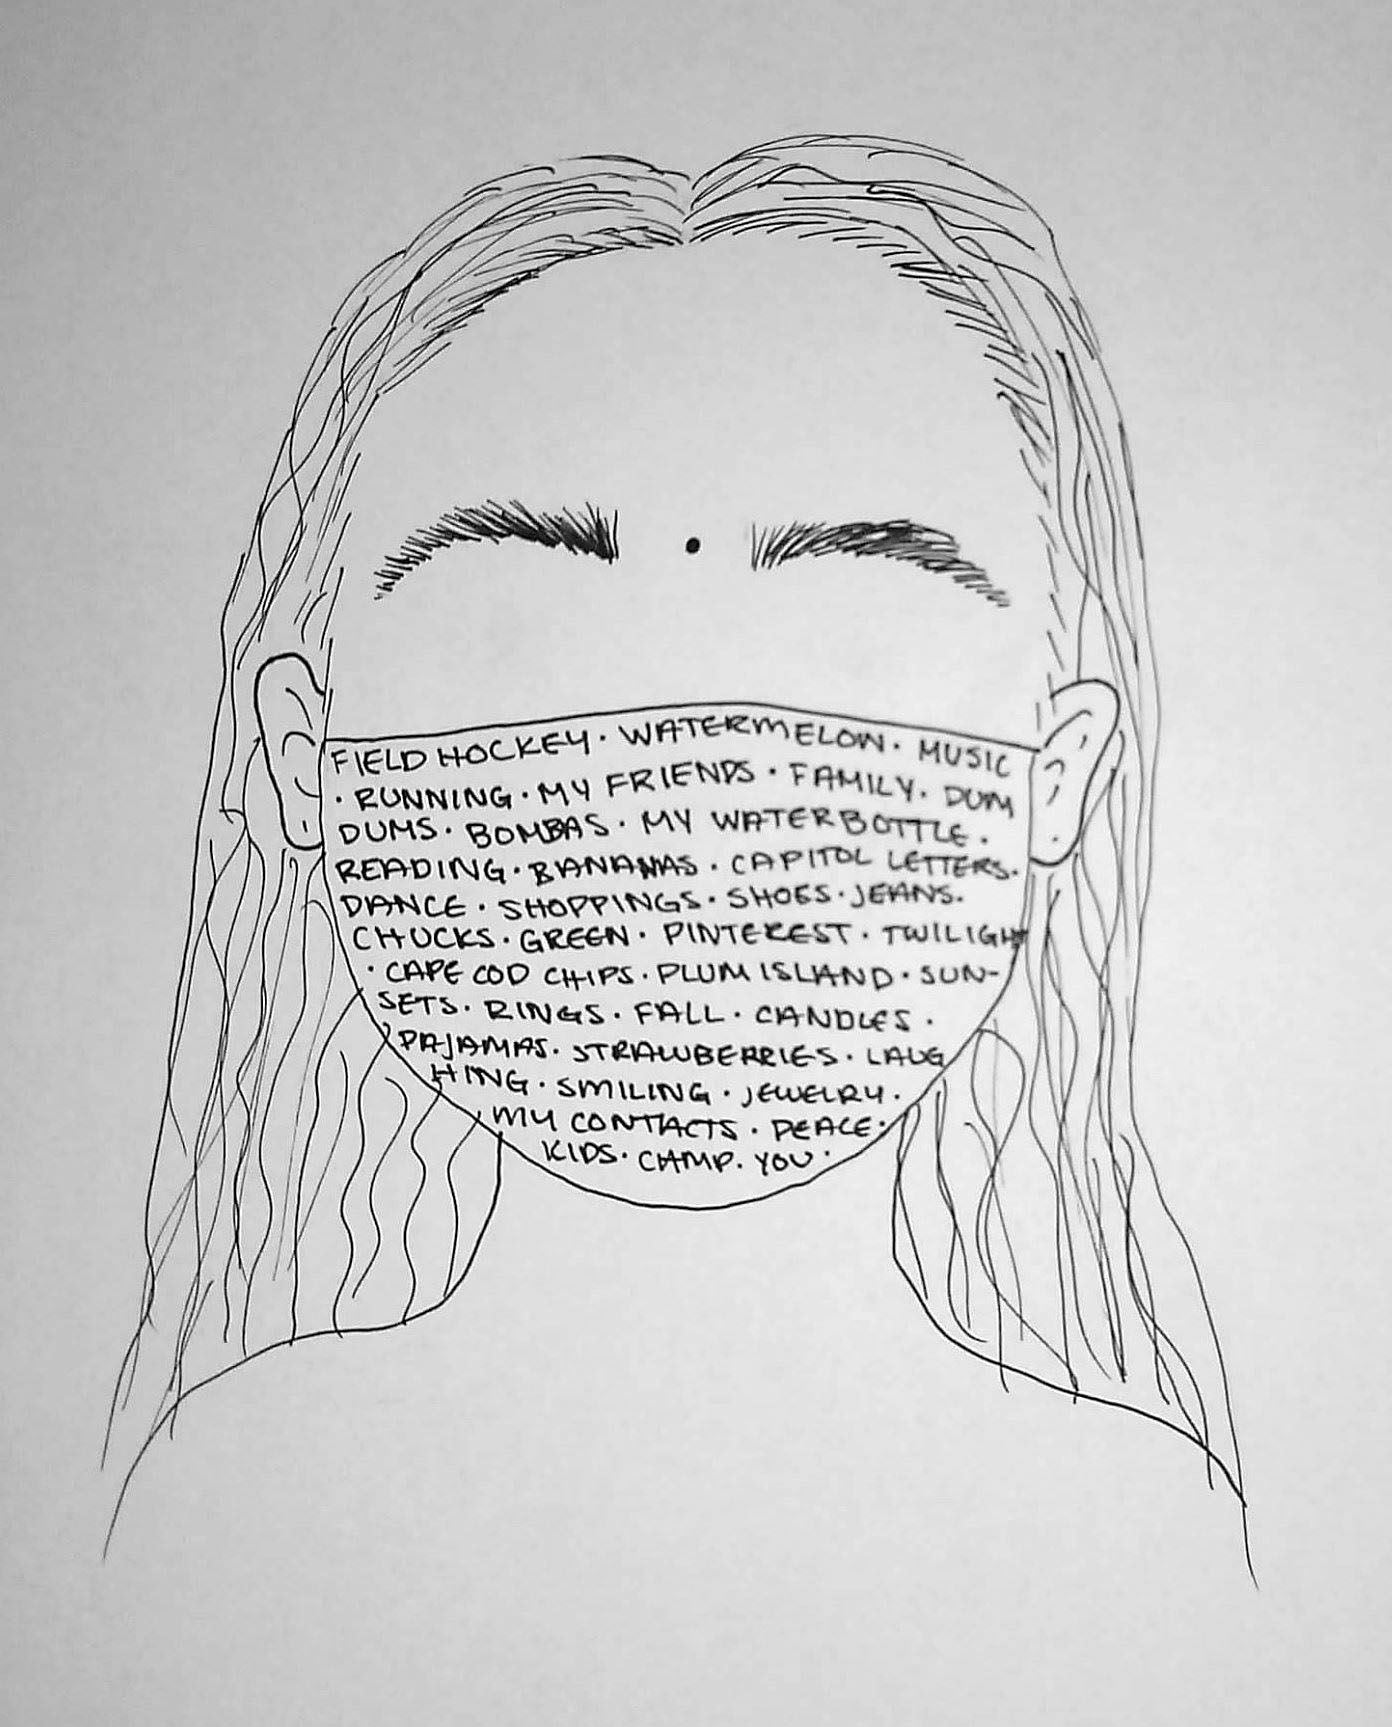 FIELD HOCKEY · WATERMELON · MUSIC
· RUNNING · MY FRIENDS · FAMILY · DUM
DUMS · BOMBAS · MY WATERBOTTLE ·
READING · BANANAS · CAPITOL LETTERS ·
DANCE · SHOPPINGS · SHOES · JEANS ·
CHUCKS · GREEN · PINTEREST · TWILIGHT
· CAPE COD CHIPS · PLUM ISLAND · SUN-
SETS · RINGS · FALL · CANDLES ·
PAJAMAS · STRAWBERRIES · LAUG
HING · SMILING · JEWELRY ·
MY CONTACTS · PEACE ·
KIDS · CAMP · YOU ·